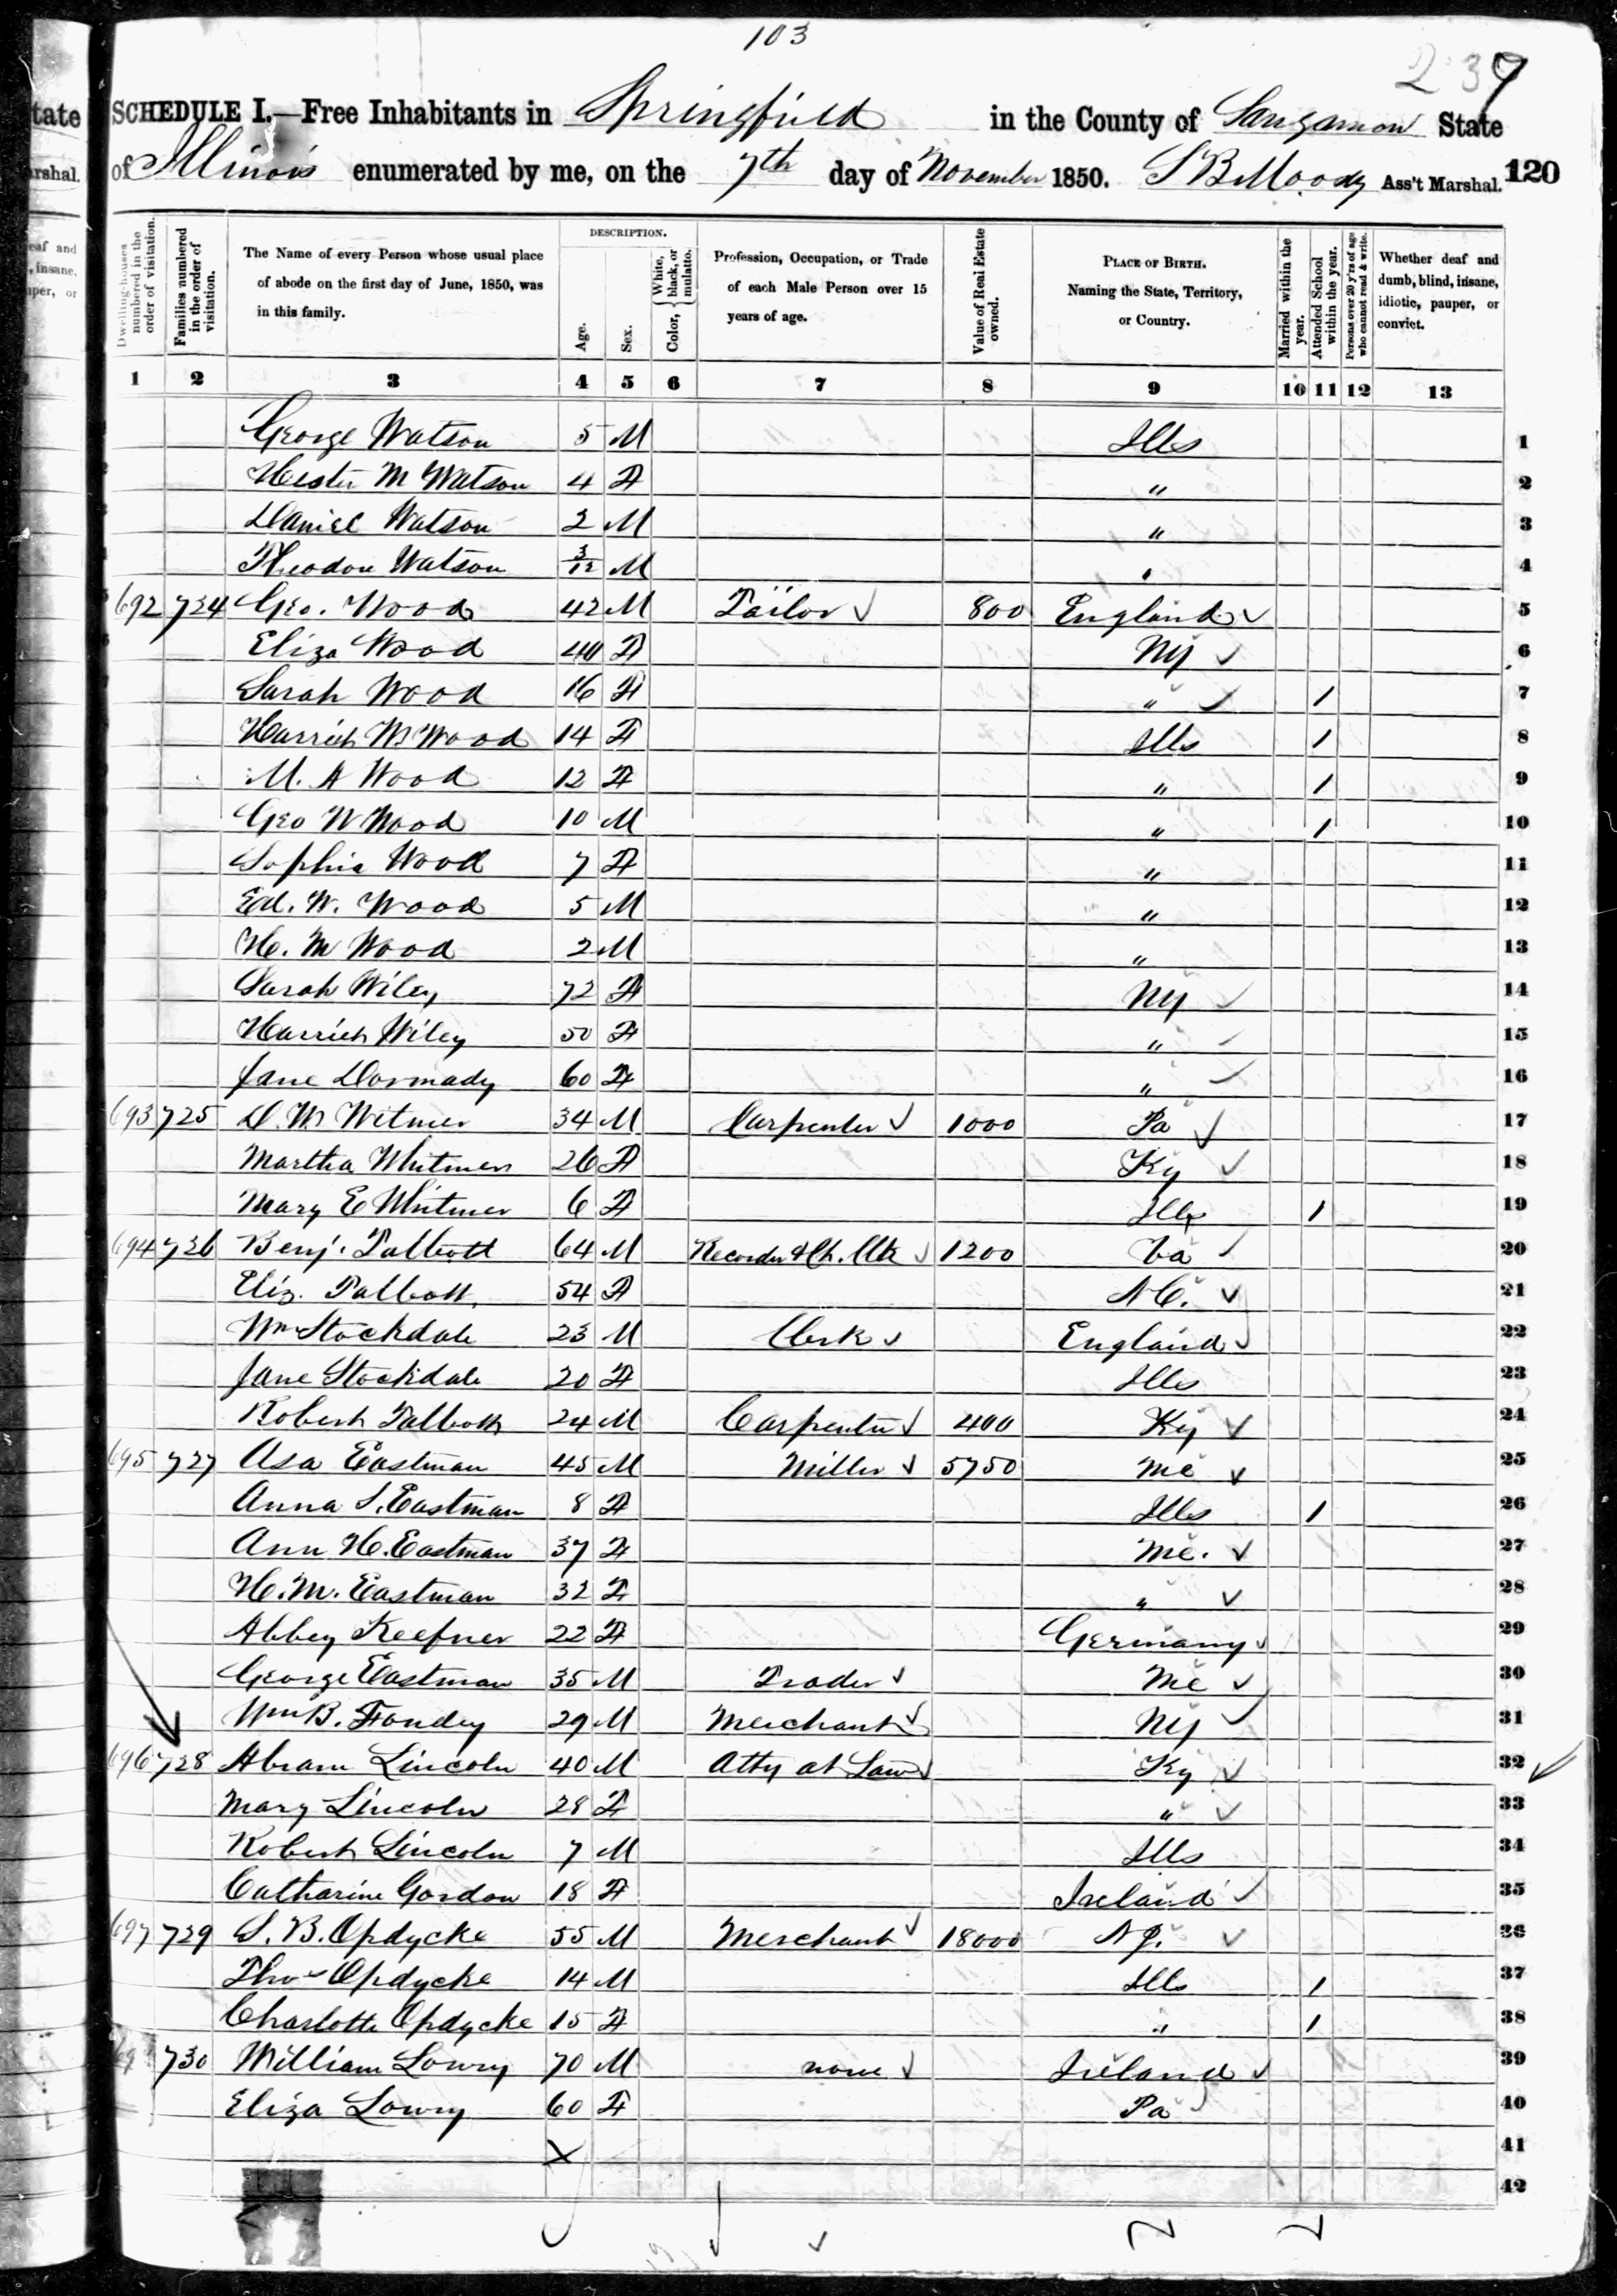 103
237
SCHEDULE I.—Free Inhabitants in Springfield in the County of Sangamon State
of Illinois enumerated by me, on the 7th day of November 1850. S B Moody Ass't Marshal. 120
tate
arshal.
eaf and
, insane,
uper, or
Dwelling-houses numbered in the order of visitation.
Families numbered in the order of visitation.
The Name of every Person whose usual place of abode on the first day of June, 1850, was in this family.
DESCRIPTION.
Age.
Sex.
Color, { White, black, or mulatto.
Profession, Occupation, or Trade of each Male Person over 15 years of age.
Value of Real Estate owned.
PLACE OF BIRTH. Naming the State, Territory, or Country.
Married within the year.
Attended School within the year.
Persons over 20 y'rs of age who cannot read & write.
Whether deaf and dumb, blind, insane, idiotic, pauper, or convict.
1 2 3 4 5 6 7 8 9 10 11 12 13
George Watson 5 M Ills 1
Hester M Watson 4 F " 2
Daniel Watson 2 M " 3
Theodore Watson 3/12 M " 4
692 724 Geo. Wood 42 M Tailor ✓ 800 England ✓ 5
Eliza Wood 40 F NY ✓ 6
Sarah Wood 16 F " ✓ 1 7
Harriet M Wood 14 F Ills 1 8
M. A Wood 12 F " 1 9
Geo W Wood 10 M " 1 10
Sophia Wood 7 F " 11
Ed. W. Wood 5 M " 12
H. M Wood 2 M " 13
Sarah Wiley 72 F NY ✓ 14
Harriet Wiley 50 F " ✓ 15
Jane Dormady 60 F " ✓ 16
693 725 D. M Witmer 34 M Carpenter ✓ 1000 Pa ✓ 17
Martha Whitmer 26 F Ky ✓ 18
Mary E Whitmer 6 F Ills 1 19
694 726 Benj. Talbott 64 M Recorder & Ch. Clk ✓ 1200 Va ✓ 20
Eliz. Talbott 54 F N C. ✓ 21
Wm Stockdale 23 M Clerk ✓ England ✓ 22
Jane Stockdale 20 F Ills 23
Robert Talbott 24 M Carpenter ✓ 400 Ky ✓ 24
695 727 Asa Eastman 45 M Miller ✓ 5750 Me ✓ 25
Anna S. Eastman 8 F Ills 1 26
Ann H. Eastman 37 F Me. ✓ 27
H. M. Eastman 32 F " ✓ 28
Abbey Keefner 22 F Germany ✓ 29
George Eastman 35 M Trader ✓ Me ✓ 30
Wm B. Fondey 29 M Merchant ✓ NY ✓ 31
696 728 Abram Lincoln 40 M Atty at Law ✓ Ky ✓ 32 ✓
Mary Lincoln 28 F " ✓ 33
Robert Lincoln 7 M Ills 34
Catharine Gordon 18 F Ireland ✓ 35
697 729 S. B. Opdycke 55 M Merchant ✓ 18000 N J. ✓ 36
Thos Opdycke 14 M Ills 1 37
Charlotte Opdycke 15 F " 1 38
730 William Lowry 70 M none ✓ Ireland ✓ 39
Eliza Lowry 60 F Pa 40
X 41
42